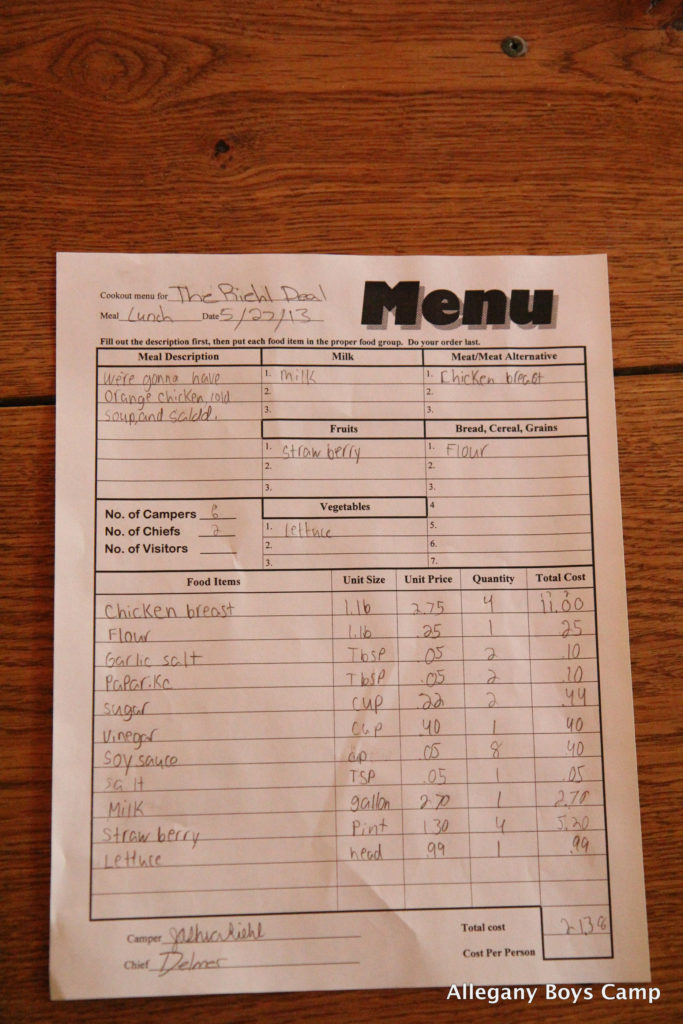 Cookout menu for The Riehl Deal
Menu
Meal Lunch Date 5/27/13
Fill out the description first, then put each food item in the proper food group. Do your order last.
Meal Description Milk Meat/Meat Alternative
We're gonna have 1. Milk 1. Chicken breast
Orange chicken, cold 2. 2.
soup, and salad. 3. 3.
Fruits Bread, Cereal, Grains
1. Strawberry 1. Flour
2. 2.
3. 3.
No. of Campers 8 Vegetables 4
No. of Chiefs 2 1. Lettuce 5.
No. of Visitors 2. 6.
3. 7.
Food Items Unit Size Unit Price Quantity Total Cost
Chicken breast 1.lb 2.75 4 11.00
Flour 1.lb .25 1 25
Garlic salt Tbsp .05 2 .10
PaPariKc Tbsp .05 2 .10
sugar cup .22 2 .44
Vinegar Cup .40 1 40
Soy sauce .05 8 .40
salt TSP .05 1 .05
Milk gallon 2.70 1 2.70
Straw berry Pint 1.30 4 5.20
Lettuce head .99 1 .99
Camper Joshua Riehl Total cost 21.38
Chief Delmer Cost Per Person
Allegany Boys Camp